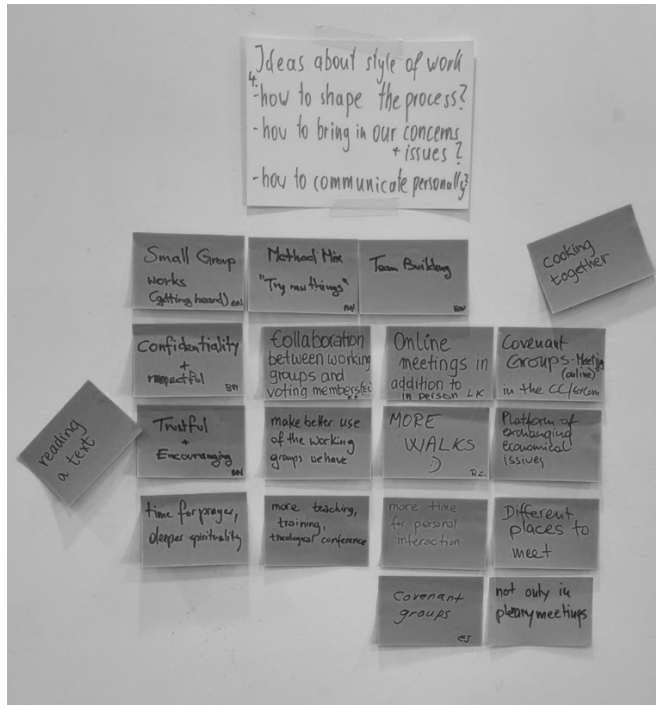 Ideas about style of work
4.
- how to shape the process?
- how to bring in our concerns
+ issues?
- how to communicate personally?
Small Group
works
(getting heard) BN
Method Mix
"Try new things"
BN
Team Building
BN
cooking
together
Confidentiality
+
respectful
BN
Collaboration
between working
groups and
voting members
Online
meetings in
addition to
in person LK
Covenant
Groups-Meeting
(online)
in the CC/ExCom
reading
a text
Trustful
+
Encouraging
BN
make better use
of the working
groups we have
MORE
WALKS
:)
RZ.
Platform of
exchanging
economical
issues
time for prayer,
deeper spirituality
more teaching,
training,
theological conference
more time
for personal
interaction
Different
places to
meet
Covenant
groups
es
not only in
plenary meetings